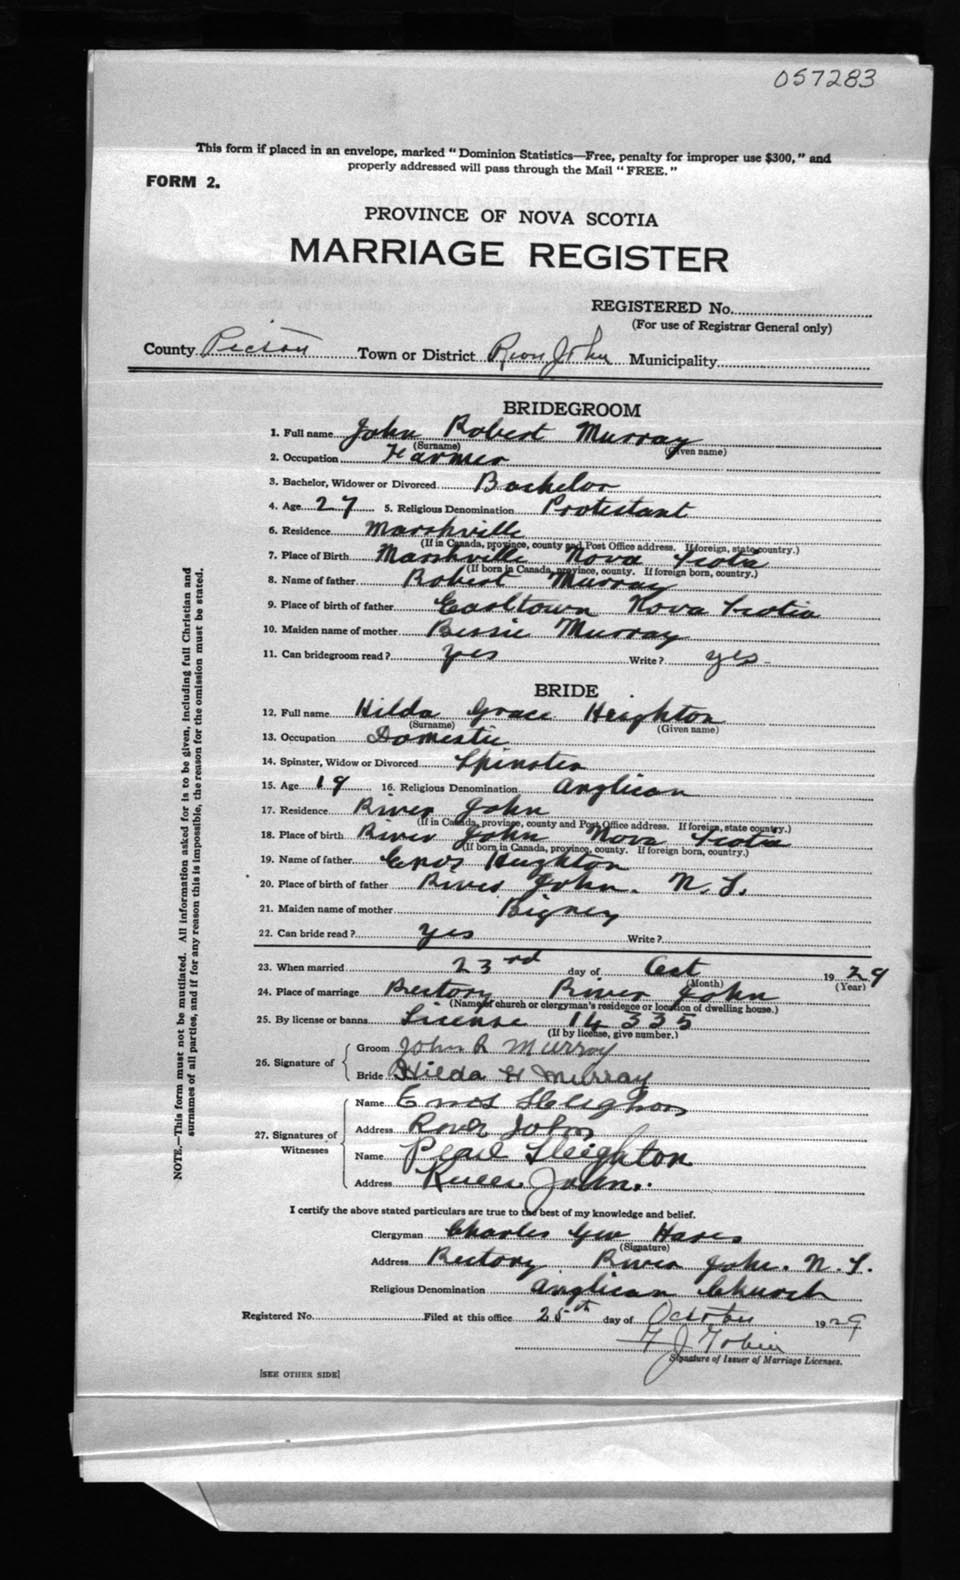 057283
This form if placed in an envelope, marked "Dominion Statistics—Free, penalty for improper use $300," and
properly addressed will pass through the Mail "FREE."
FORM 2.
PROVINCE OF NOVA SCOTIA
MARRIAGE REGISTER
REGISTERED No.
(For use of Registrar General only)
County Pictou Town or District River John Municipality
BRIDEGROOM
1. Full name John Robert Murray
(Surname) (Given name)
2. Occupation Farmer
3. Bachelor, Widower or Divorced Bachelor
4. Age 27 5. Religious Denomination Protestant
6. Residence Marshville
(If in Canada, province, county and Post Office address. If foreign, state country.)
7. Place of Birth Marshville Nova Scotia
(If born in Canada, province, county. If foreign born, country.)
8. Name of father Robert Murray
9. Place of birth of father Earltown Nova Scotia
10. Maiden name of mother Bessie Murray
11. Can bridegroom read? yes Write? yes
BRIDE
12. Full name Hilda Grace Heighton
(Surname) (Given name)
13. Occupation Domestic
14. Spinster, Widow or Divorced Spinster
15. Age 19 16. Religious Denomination Anglican
17. Residence River John
(If in Canada, province, county and Post Office address. If foreign, state country.)
18. Place of birth River John Nova Scotia
(If born in Canada, province, county. If foreign born, country.)
19. Name of father Enos Heighton
20. Place of birth of father River John. N. S.
21. Maiden name of mother Bigney
22. Can bride read? yes Write?
23. When married 23rd day of Oct 1929
(Month) (Year)
24. Place of marriage Rectory River John
(Name of church or clergyman's residence or location of dwelling house.)
25. By license or banns License 14335
(If by license, give number.)
26. Signature of
Groom John R Murray
Bride Hilda H Murray
27. Signatures of Witnesses
Name Enos Heighton
Address River John
Name Pearl Heighton
Address River John.
I certify the above stated particulars are true to the best of my knowledge and belief.
Clergyman Charles Geo Hares
(Signature)
Address Rectory River John. N. S.
Religious Denomination Anglican Church
Registered No. Filed at this office 25th day of October 1929
F J Tobin
Signature of Issuer of Marriage Licenses.
[SEE OTHER SIDE]
NOTE.—This form must not be mutilated. All information asked for is to be given, including full Christian and
surnames of all parties, and if for any reason this is impossible, the reason for the omission must be stated.